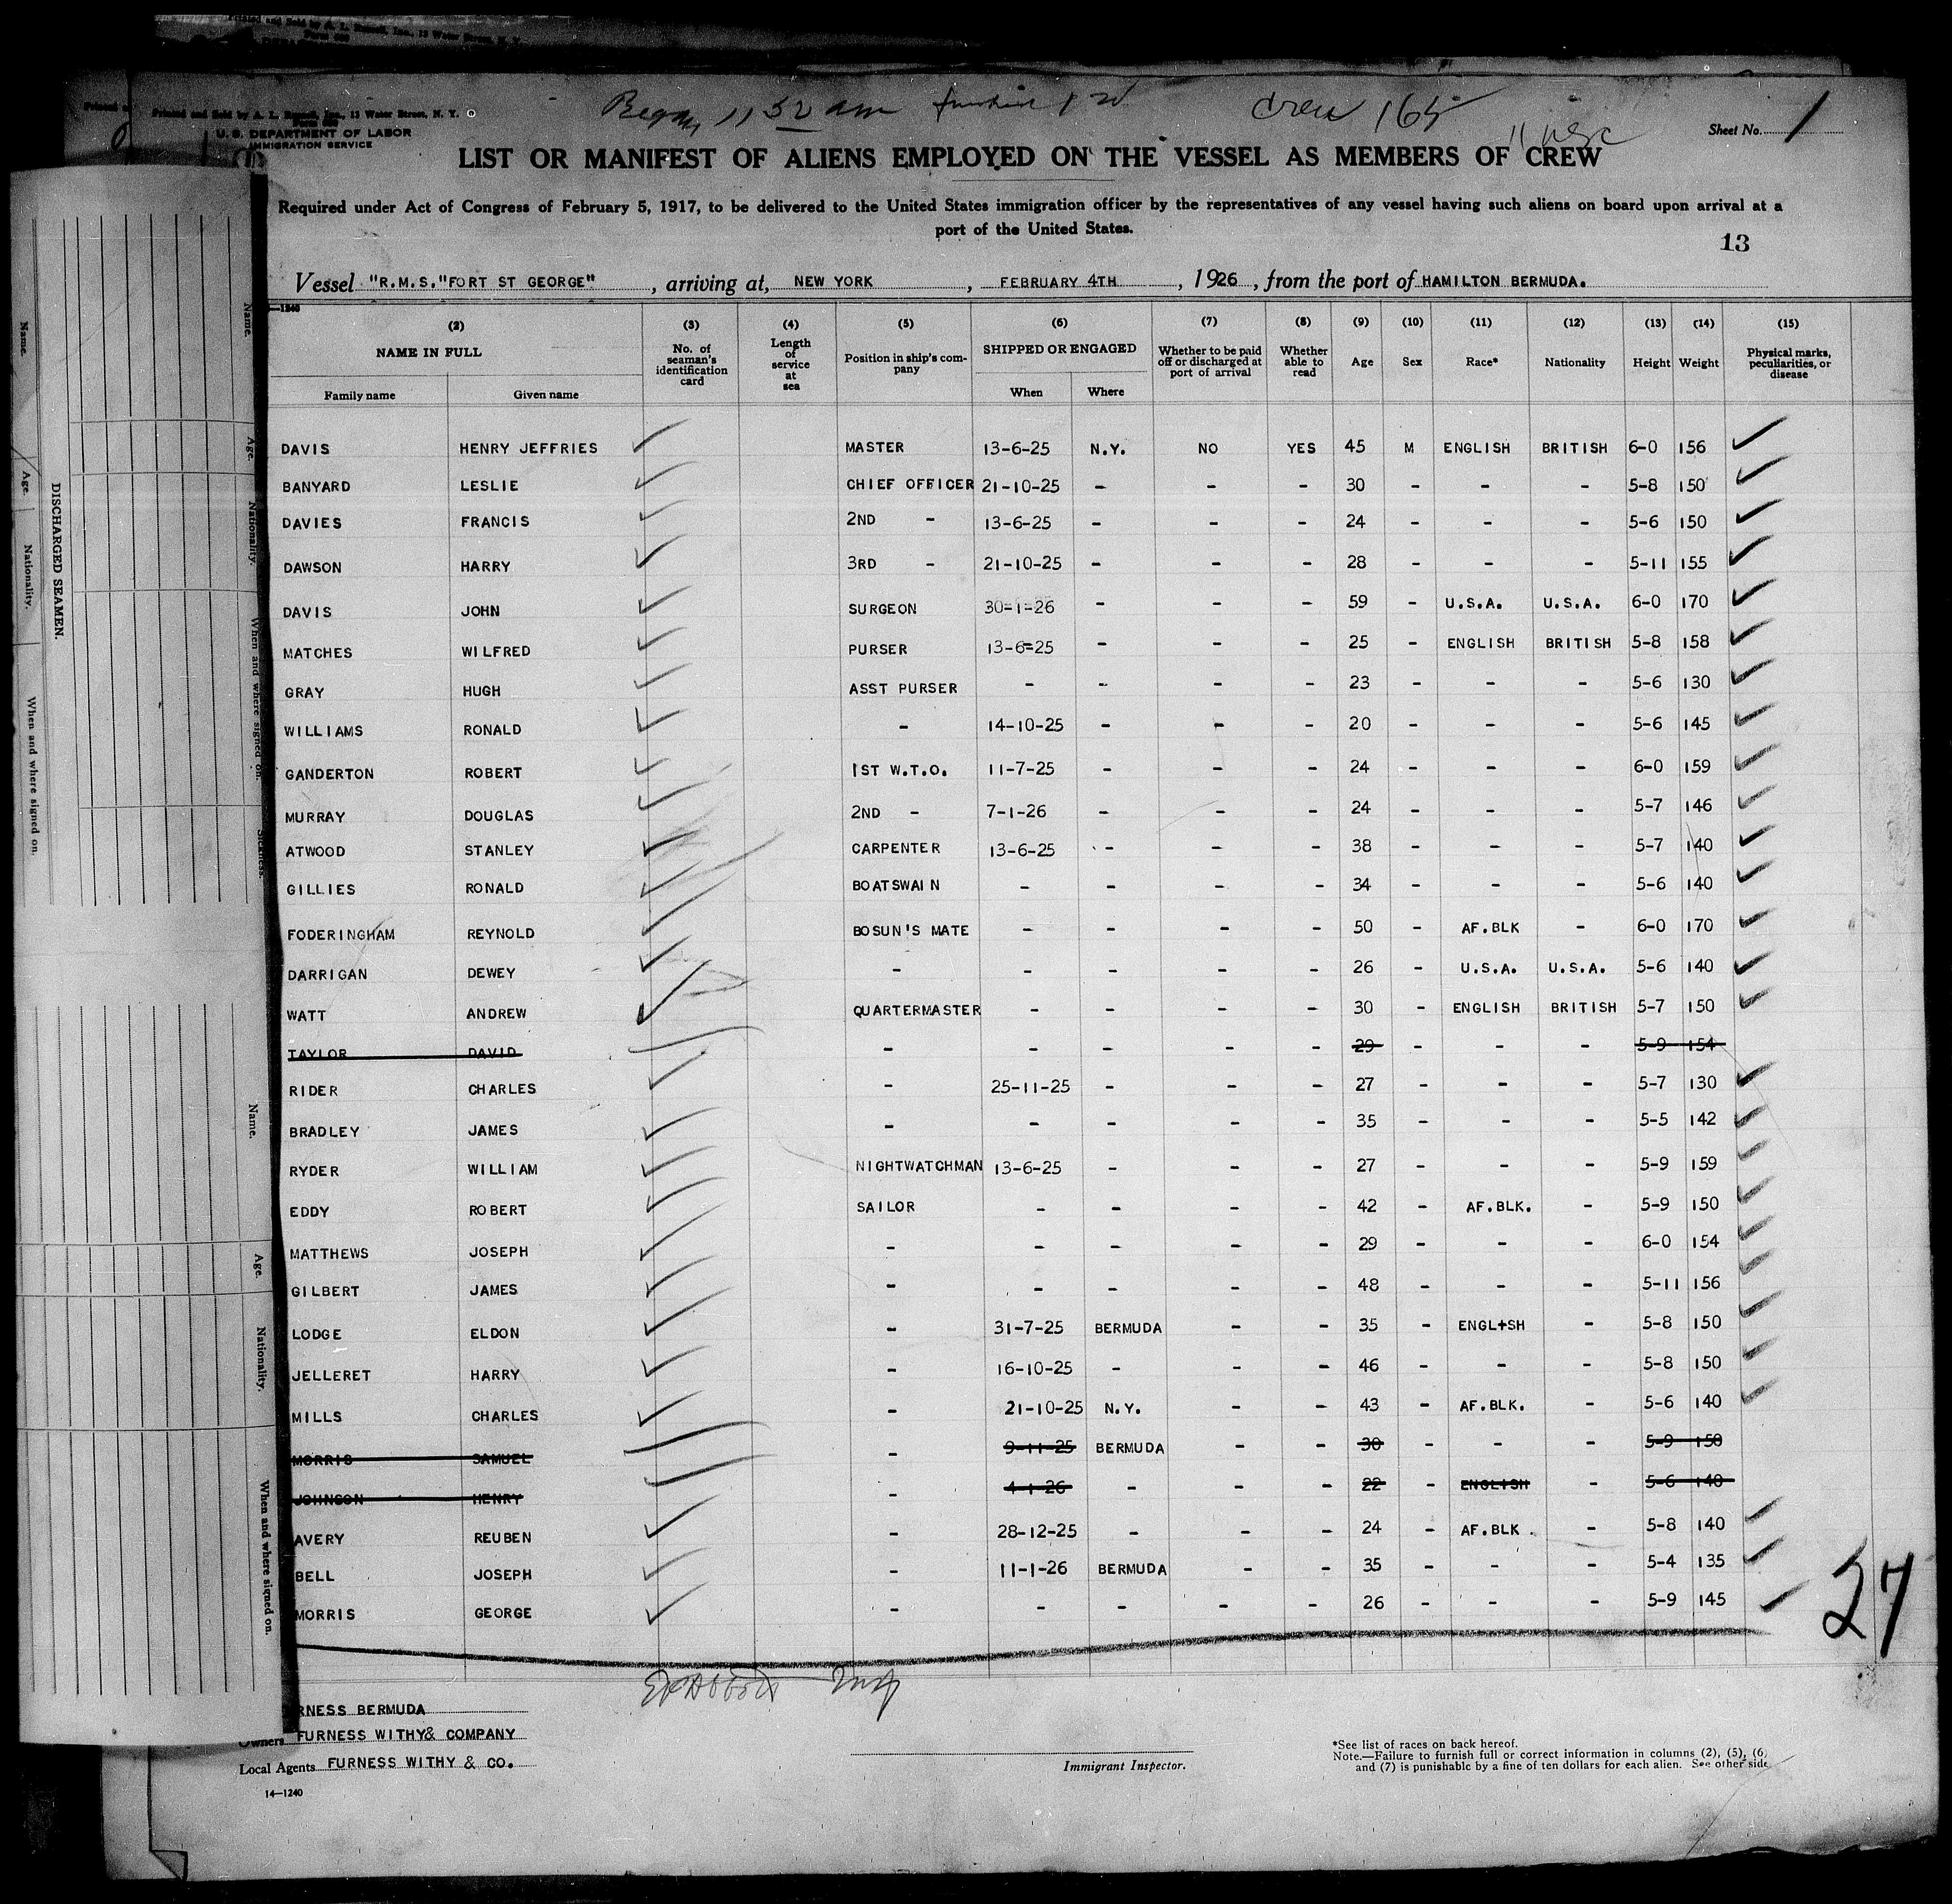 Printed and Sold by A. L. Russell, Inc., 13 Water Street, N. Y.
U. S. DEPARTMENT OF LABOR
IMMIGRATION SERVICE
Began 11 52 am
Crew 165
Sheet No. 1
LIST OR MANIFEST OF ALIENS EMPLOYED ON THE VESSEL AS MEMBERS OF CREW
Required under Act of Congress of February 5, 1917, to be delivered to the United States immigration officer by the representatives of any vessel having such aliens on board upon arrival at a
port of the United States.
13
Vessel "R.M.S."FORT ST GEORGE" , arriving at, NEW YORK , FEBRUARY 4TH , 1926 , from the port of HAMILTON BERMUDA.
(2) (3) (4) (5) (6) (7) (8) (9) (10) (11) (12) (13) (14) (15)
NAME IN FULL No. of seaman's identification card Length of service at sea Position in ship's company SHIPPED OR ENGAGED Whether to be paid off or discharged at port of arrival Whether able to read Age Sex Race* Nationality Height Weight Physical marks, peculiarities, or disease
Family name Given name When Where
DAVIS HENRY JEFFRIES MASTER 13-6-25 N.Y. NO YES 45 M ENGLISH BRITISH 6-0 156
BANYARD LESLIE CHIEF OFFICER 21-10-25 - - - 30 - - - 5-8 150
DAVIES FRANCIS 2ND - 13-6-25 - - - 24 - - - 5-6 150
DAWSON HARRY 3RD - 21-10-25 - - - 28 - - - 5-11 155
DAVIS JOHN SURGEON 30=1-26 - - - 59 - U.S.A. U.S.A. 6-0 170
MATCHES WILFRED PURSER 13-6=25 - - - 25 - ENGLISH BRITISH 5-8 158
GRAY HUGH ASST PURSER - - - - 23 - - - 5-6 130
WILLIAMS RONALD - 14-10-25 - - - 20 - - - 5-6 145
GANDERTON ROBERT 1ST W.T.O. 11-7-25 - - - 24 - - - 6-0 159
MURRAY DOUGLAS 2ND - 7-1-26 - - - 24 - - - 5-7 146
ATWOOD STANLEY CARPENTER 13-6-25 - - - 38 - - - 5-7 140
GILLIES RONALD BOATSWAIN - - - - 34 - - - 5-6 140
FODERINGHAM REYNOLD BOSUN'S MATE - - - - 50 - AF.BLK - 6-0 170
DARRIGAN DEWEY - - - - - 26 - U.S.A. U.S.A. 5-6 140
WATT ANDREW QUARTERMASTER - - - - 30 - ENGLISH BRITISH 5-7 150
TAYLOR DAVID - - - - - 29 - - - 5-9 154
RIDER CHARLES - 25-11-25 - - - 27 - - - 5-7 130
BRADLEY JAMES - - - - - 35 - - - 5-5 142
RYDER WILLIAM NIGHTWATCHMAN 13-6-25 - - - 27 - - - 5-9 159
EDDY ROBERT SAILOR - - - - 42 - AF.BLK. - 5-9 150
MATTHEWS JOSEPH - - - - - 29 - - - 6-0 154
GILBERT JAMES - - - - - 48 - - - 5-11 156
LODGE ELDON - 31-7-25 BERMUDA - - 35 - ENGL+SH - 5-8 150
JELLERET HARRY - 16-10-25 - - - 46 - - - 5-8 150
MILLS CHARLES - 21-10-25 N.Y. - - 43 - AF.BLK. - 5-6 140
MORRIS SAMUEL - 9-11-25 BERMUDA - - 30 - - - 5-9 150
JOHNSON HENRY - 4-1-26 - - - 22 - ENGL+SH - 5-6 140
AVERY REUBEN - 28-12-25 - - - 24 - AF.BLK. - 5-8 140
BELL JOSEPH - 11-1-26 BERMUDA - - 35 - - - 5-4 135
MORRIS GEORGE - - - - - 26 - - - 5-9 145
27
RNESS BERMUDA
Owners FURNESS WITHY& COMPANY
Local Agents FURNESS WITHY & CO.
Immigrant Inspector.
*See list of races on back hereof.
Note.—Failure to furnish full or correct information in columns (2), (5), (6)
and (7) is punishable by a fine of ten dollars for each alien. See other side
14—1240
DISCHARGED SEAMEN.
Name.
Age.
Nationality.
When and where signed on.
Name.
Age.
Nationality.
When and where signed on.
Sickness.
Name.
Age.
Nationality.
When and where signed on.